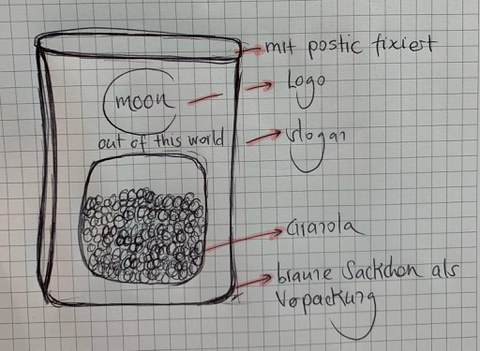 mit postic fixiert
moon
Logo
out of this world
slogan
Granola
braune Säckchen als
Verpackung